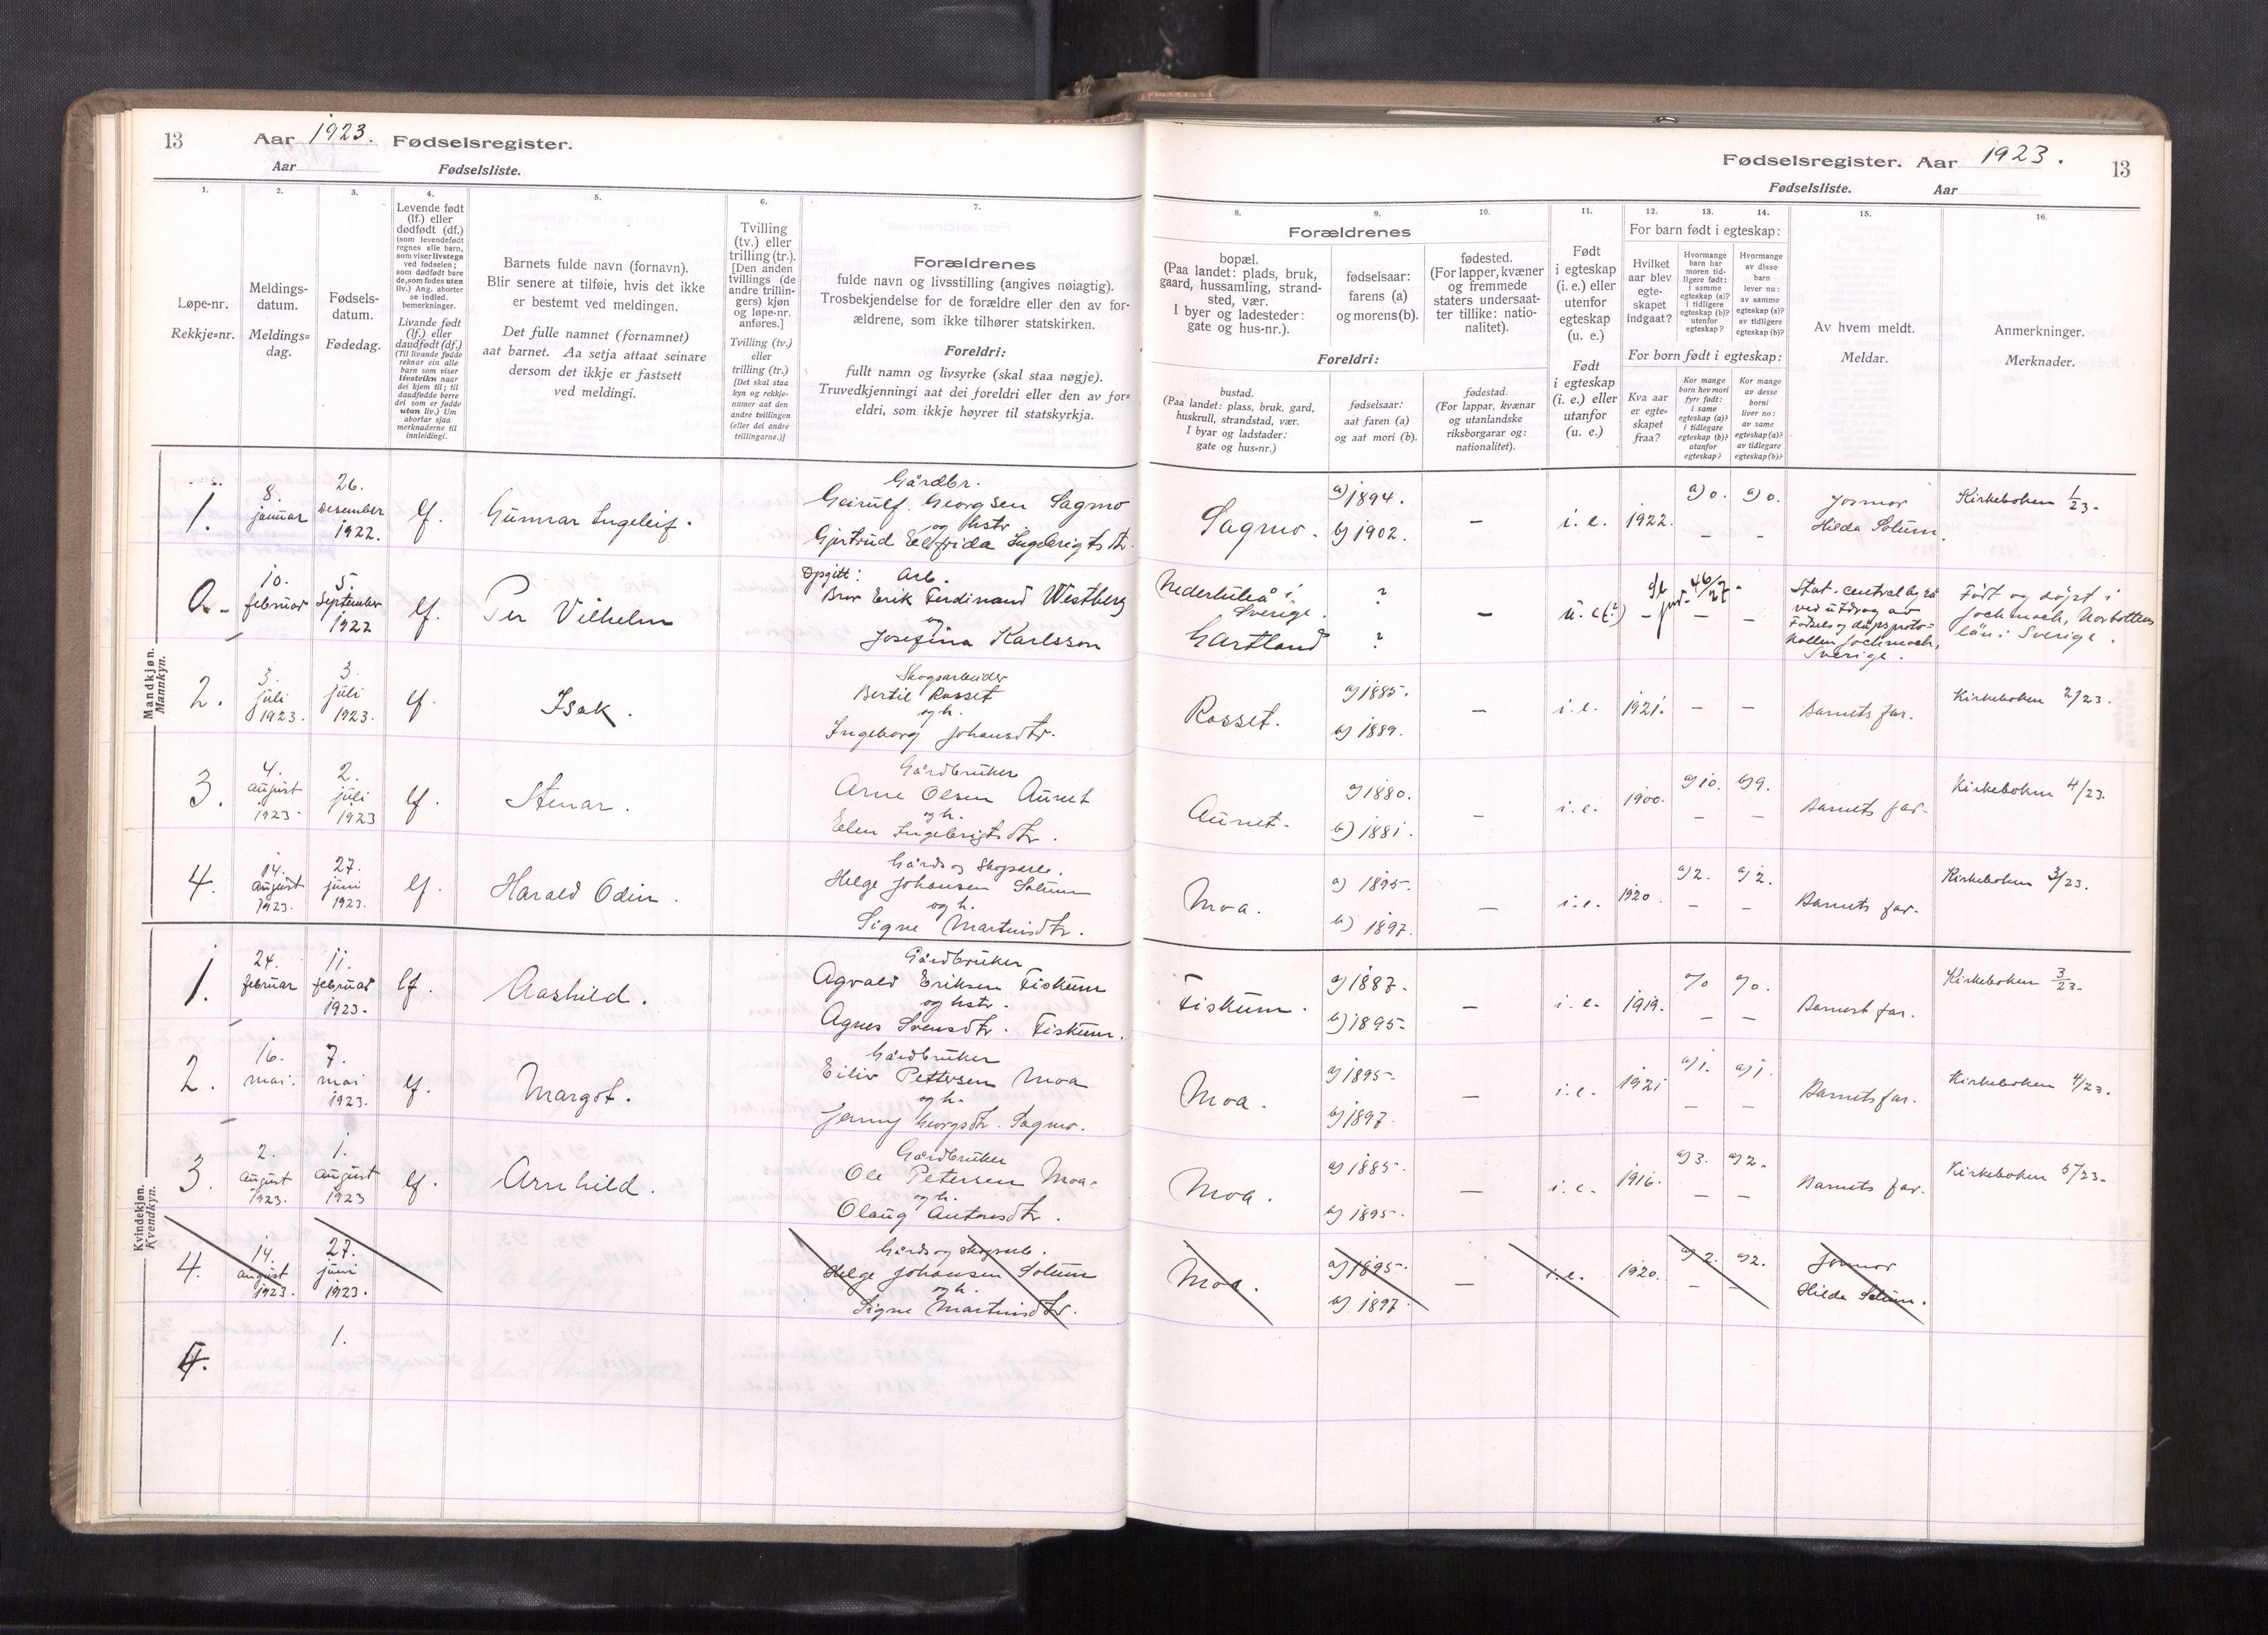 13
Aar 1923. Fødselsregister.
Aar Fødselsliste.
Fødselsregister. Aar 1923.
13
Fødselsliste. Aar
1.
Løpe-nr.
Rekkje=nr.
2.
Meldings-
datum.
Meldings=
dag.
3.
Fødsels-
datum.
Fødedag.
4.
Levende født
(lf.) eller
dødfødt (df.)
(som levendefødt
regnes alle barn,
som viser livstegn
ved fødselen;
som dødfødt bare
de, som fødes uten
liv.) Ang. aborter
se indled.
bemerkninger.
Livande født
(lf.) eller
daudfødt (df.)
(Til livande fødde
reknar ein alle
barn som viser
livsteikn naar
dei kjem til; til
daudfødde berre
dei som er fødde
utan liv.) Um
abortar sjaa
merknaderne til
innleidingi.
5.
Barnets fulde navn (fornavn).
Blir senere at tilføie, hvis det ikke
er bestemt ved meldingen.
Det fulle namnet (fornamnet)
aat barnet. Aa setja attaat seinare
dersom det ikkje er fastsett
ved meldingi.
6.
Tvilling
(tv.) eller
trilling (tr.).
[Den anden
tvillings (de
andre trillin-
gers) kjøn
og løpe-nr.
anføres.]
Tvilling (tv.)
eller
trilling (tr.)
[Det skal staa
kyn og rekkje-
numer aat den
andre tvillingen
(eller dei andre
trillingarne.)]
7.
Forældrenes
fulde navn og livsstilling (angives nøiagtig).
Trosbekjendelse for de forældre eller den av for-
ældrene, som ikke tilhører statskirken.
Foreldri:
fullt namn og livsyrke (skal staa nøgje).
Truvedkjenningi aat dei foreldri eller den av for=
eldri, som ikkje høyrer til statskyrkja.
Forældrenes
8.
bopæl.
(Paa landet: plads, bruk,
gaard, hussamling, strand-
sted, vær.
I byer og ladesteder:
gate og hus-nr.).
9.
fødselsaar:
farens (a)
og morens (b).
10.
fødested.
(For lapper, kvæner
og fremmede
staters undersaat-
ter tillike: natio-
nalitet).
Foreldri:
bustad.
(Paa landet: plass, bruk, gard,
huskrull, strandstad, vær.
I byar og ladstader:
gate og hus=nr.)
fødselsaar:
aat faren (a)
og aat mori (b).
fødestad.
(For lappar, kvænar
og utanlandske
riksborgarar og:
nationalitet).
11.
Født
i egteskap
(i. e.) eller
utenfor
egteskap
(u. e.)
Født
i egteskap
(i. e.) eller
utanfor
(u. e.)
12. 13. 14.
For barn født i egteskap:
Hvilket
aar blev
egte-
skapet
indgaat?
Hvormange
barn har
moren tid-
ligere født:
i samme
egteskap (a)?
i tidligere
egteskap (b)?
utenfor
egteskap?
Hvormange
av disse
barn
lever nu:
av samme
egteskap (a)?
av tidligere
egteskap (b)?
For born født i egteskap:
Kva aar
er egte=
skapet
fraa?
Kor mange
born hev mori
fyrr født:
i same
egteskap (a)?
i tidlegare
egteskap (b)?
utanfor
egteskap?
Kor mange
av desse
borni
liver no:
av same
egteskap (a)?
av tidlegare
egteskap (b)?
15.
Av hvem meldt.
Meldar.
16.
Anmerkninger.
Merknader.
Mandkjøn.
Mannkyn.
1. 8. januar 26. desember 1922. lf. Gunnar Ingeleif. Gårdbr. Geirulf. Georgsen Sagmo og hstr. Gjertrud Elfrida Ingebrigtsdtr. Sagmo. a) 1894. b) 1902. – i. e. 1922. a) 0. a) 0. – – Jormor Hilda Solum. Kirkeboken 1/23.
a. 10. februar 5. september 1922 lf. Per Vilhelm Opgitt: Arb. Bror Erik Ferdinand Westberg og Josefina Karlsson Nederluleå i Sverige. Gartland ? ? – u. e (?) – – – Stat. centralbyrå ved utdrag av Fødsels og dåpsproto= kollen Jockmock, Sverige. Født og døpt i Jockmock, Norbottens län i Sverige.
2. 3. juli 1923. 3. juli 1923. lf. Isak. Skogsarbeider Bertil Rosset og h. Ingeborg Johansdtr. Rosset. a) 1885. b) 1889. – i. e. 1921. – – Barnets far. Kirkeboken 2/23.
3. 4. august 1923. 2. juli 1923 lf. Stenar. Gårdbruker Arne Olsen Aunet og h. Elen Ingebrigtsdtr. Aunet. a) 1880. b) 1881. – i. e. 1900. a) 10. b) 9. – – Barnets far. Kirkeboken 4/23.
4. 14. august 1923. 27. juni 1923. lf. Harald Odin. Gårds og Skogsarb. Helge Johansen Solum og h. Signe Martinisdtr. Moa. a) 1895. b) 1897. – i. e. 1920. a) 2. a) 2. – – Barnets far. Kirkeboken 3/23.
Kvindekjøn.
Kvendkyn.
1. 24. februar 11. februar 1923. lf. Aashild. Gårdbruker Agvald Eriksen Fiskum og hstr. Agnes Svensdtr. Fiskum. Fiskum. a) 1887. b) 1895. – i. e. 1919. a/0 a/0. – – Barnest far. Kirkeboken 3/23.
2. 16. mai. 7. mai 1923. lf. Margot. Gårdbruker Eiliv Pettersen Moa og h. Jenny Georgsdtr. Sagmo. Moa. a) 1895. b) 1897. – i. e. 1921 a) 1. a) 1. – – Barnets far. Kirkeboken 4/23.
3. 2. august 1923. 1. august 1923 lf. Arnhild. Gårdbruker Ole Petersen Moa. og h. Olaug Antonsdtr. Moa. a) 1885. b) 1895. – i. e. 1916. a) 3. a) 2. – – Barnets far. Kirkeboken 5/23.
4. 14. august 1923. 27. juni 1923. Gårds og skogsarb. Helge Johansen Solum og h. Signe Martinisdtr. Moa. a) 1895. b) 1897. – i. e. 1920. a) 2. a) 2. – – Jormor Hilda Solum.
4. 1.